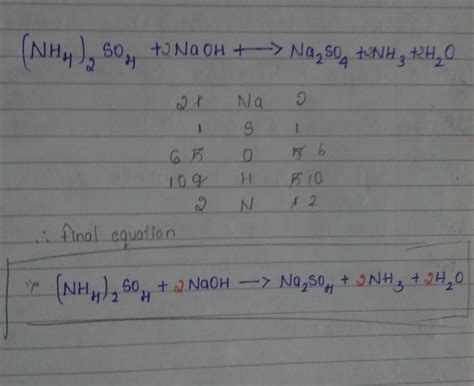 (NH₄)₂SO₄ + 2NaOH ⟶ Na₂SO₄ + 2NH₃ + 2H₂O
2 1 Na 2
1 S 1
6 5 O 5 6
10 9 H 5 10
2 N 1 2
∴ final equation
⇒ (NH₄)₂SO₄ + 2NaOH ⟶ Na₂SO₄ + 2NH₃ + 2H₂O